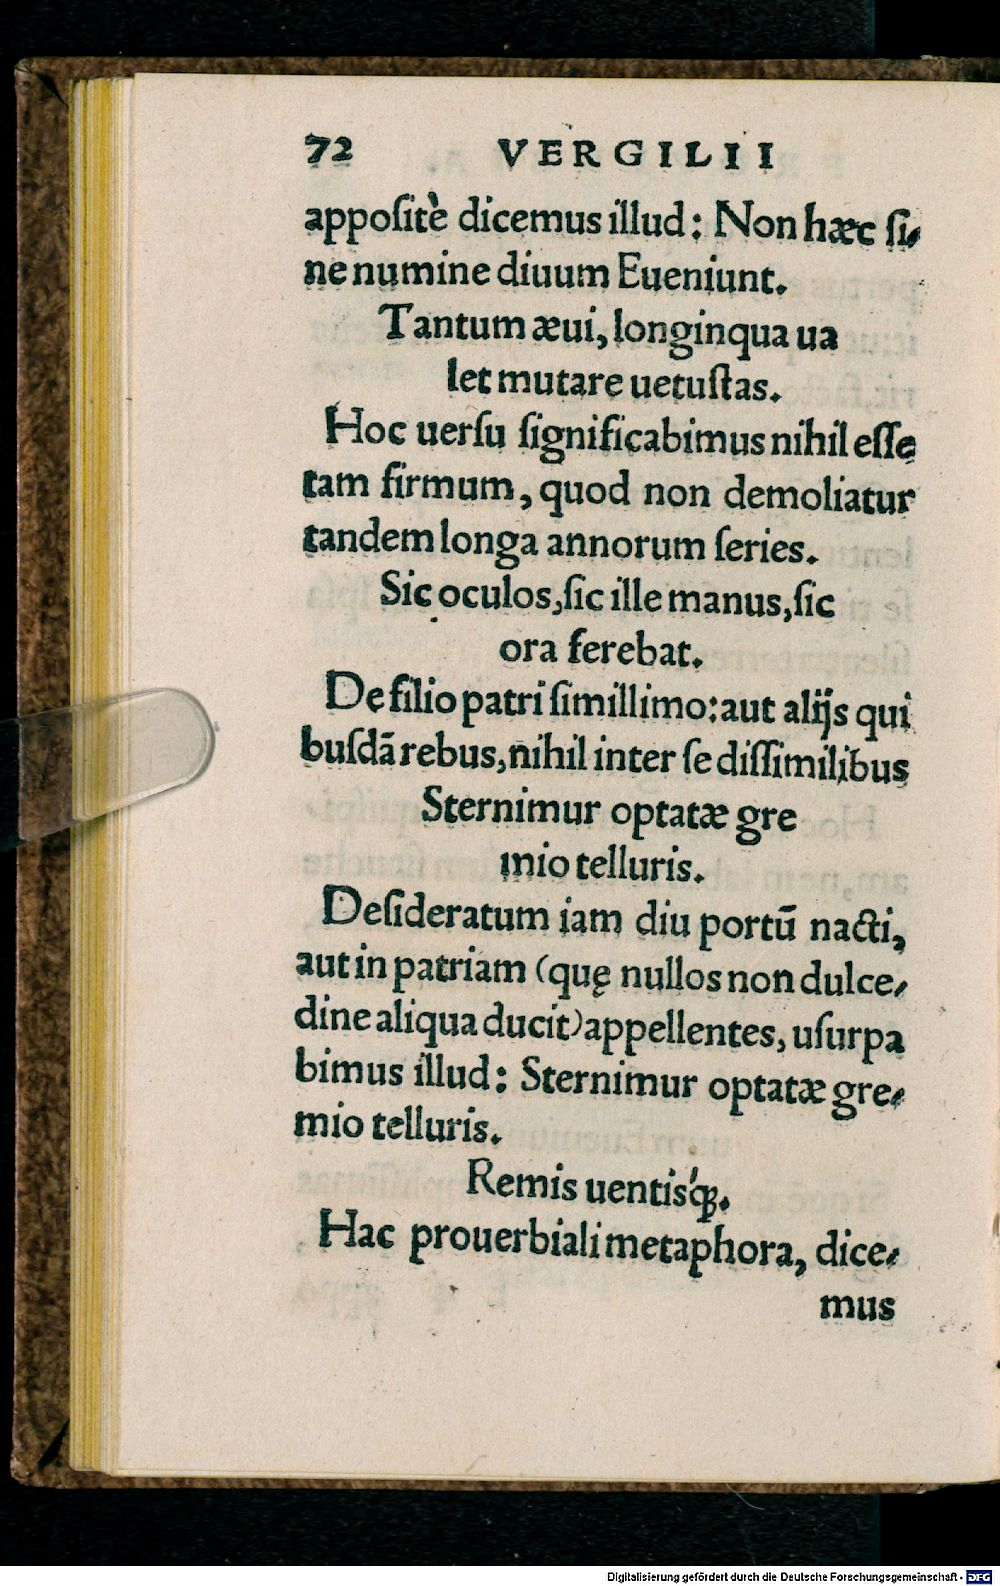 72 VERGILII
appoſitè dicemus illud: Non hæc ſi-
ne numine diuum Eueniunt.
Tantum æui, longinqua ua
let mutare uetuſtas.
Hoc uerſu ſignificabimus nihil eſſe
tam firmum, quod non demoliatur
tandem longa annorum ſeries.
Sic oculos, ſic ille manus, ſic
ora ferebat.
De filio patri ſimillimo: aut alijs qui
buſdã rebus, nihil inter ſe diſſimilibus
Sternimur optatæ gre
mio telluris.
Deſideratum iam diu portũ nacti,
aut in patriam (quę nullos non dulce-
dine aliqua ducit) appellentes, uſurpa
bimus illud: Sternimur optatæ gre-
mio telluris.
Remis uentisꝗ́;.
Hac prouerbiali metaphora, dice-
mus
Digitalisierung gefördert durch die Deutsche Forschungsgemeinschaft - DFG